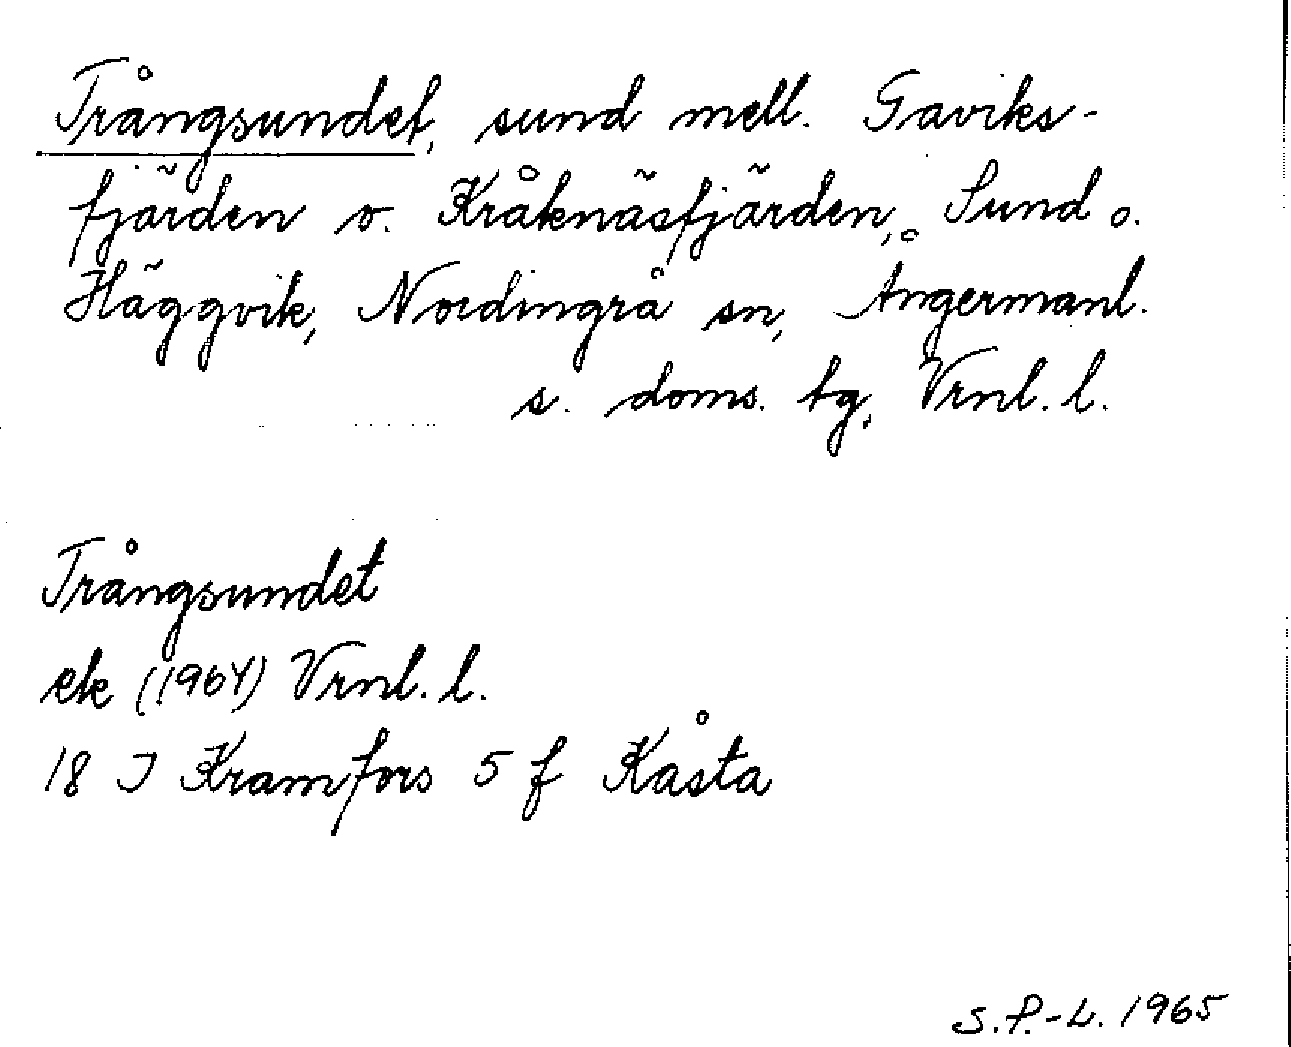 Trångsundet, sund mell. Gaviks-
fjärden o. Kråknäsfjärden, Sund o.
Häggvik, Nordingrå sn, Ångermanl.
s. doms. tg, Vrnl. l.
Trångsundet
ek (1964) Vrnl. l.
18 J Kramfors 5 f Kåsta
S.P.-L. 1965